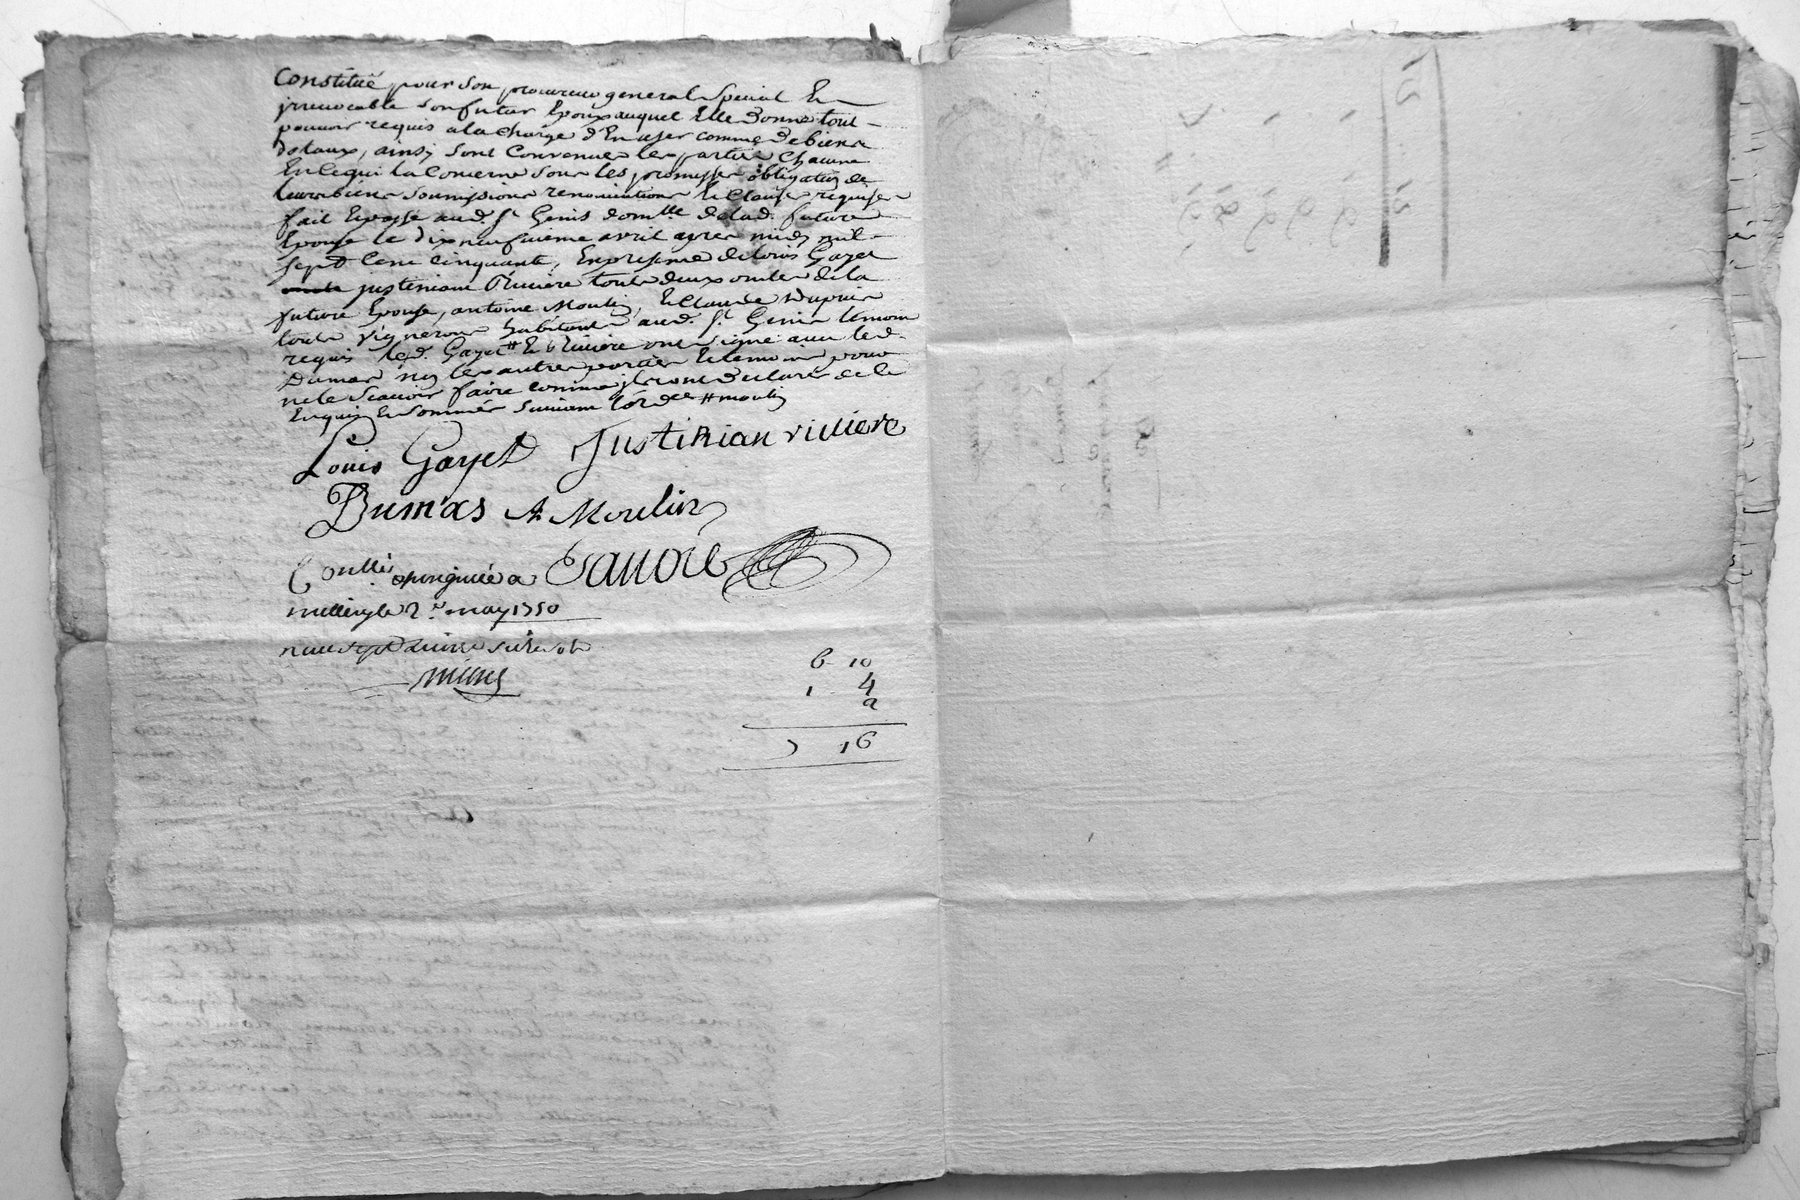 Constitué pour son procureur general special Et
jrrevocable son futur Epoux auquel Elle donne tout
pouvoir requis a la charge d'En user comme de biens
dotaux, ainsj sont Convenues les parties Chacune
En Ce qui la Concerne sous les promesses obligation de
leurs biens soumissions renonciations Et Clauses requises
fait Et passé aud. St Genis domlle de lad. future
Epouse le dix neufvieme avril apres midy mil
sept Cent Cinquante, En presence de Loüis Gayet
justinian Riviere touts deux oncles de la
future Epouse, antoine Moulin, Et Claude Dupuis
touts vignerons habitants aud. St Genis temoins
requis led. Gayet # Et Riviere ont signé avec led.
Dumas non les autres parties Et temoins pour
ne le Scavoir faire comme jls ont declaré de ce
Enquis Et Sommés suivant l'ordce # moulin
Louis Gayet Justinian riviere
Dumas A Moulin
Conllé a
millery le 2e may 1750
reçu sept livres seize s.

6 10
1 4
2
7 16